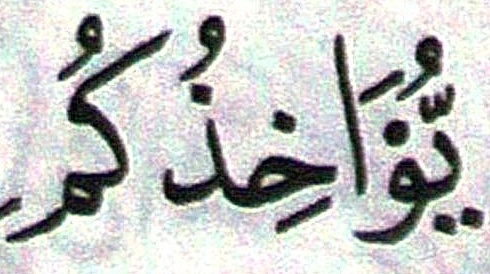 يُّؤَاخِذُكُمُ